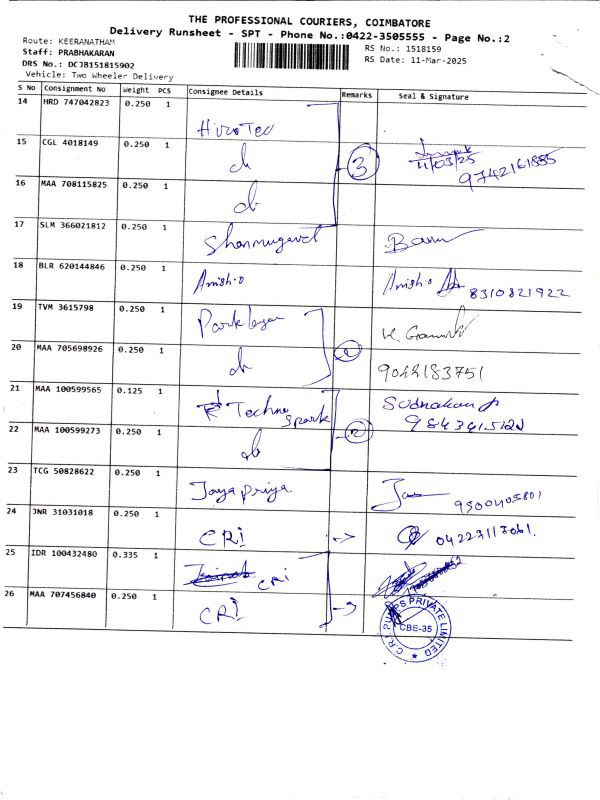 THE PROFESSIONAL COURIERS, COIMBATORE
Delivery Runsheet - SPT - Phone No.:0422-3505555 - Page No.:2
Route: KEERANATHAM
RS No.: 1518159
Staff: PRABHAKARAN
RS Date: 11-Mar-2025
DRS No.: DCJB151815902
Vehicle: Two Wheeler Delivery
S No Consignment No Weight PCS Consignee Details Remarks Seal & Signature
14 HRD 747042823 0.250 1
15 CGL 4018149 0.250 1 3 11/03/25
9742161885
16 MAA 708115825 0.250 1
17 SLM 366021812 0.250 1 Shanmugavel Banu
18 BLR 620144846 0.250 1 Anish.o Anish.o 8310821922
19 TVM 3615798 0.250 1
20 MAA 705698926 0.250 1 9042183751
21 MAA 100599565 0.125 1 Techno Spark
22 MAA 100599273 0.250 1 2
23 TCG 50828622 0.250 1 Jayapriya
24 JNR 31031018 0.250 1 CRI
25 IDR 100432480 0.335 1 CRI
26 MAA 707456840 0.250 1 CRI
C.R.I. PUMPS PRIVATE LIMITED
CBE-35